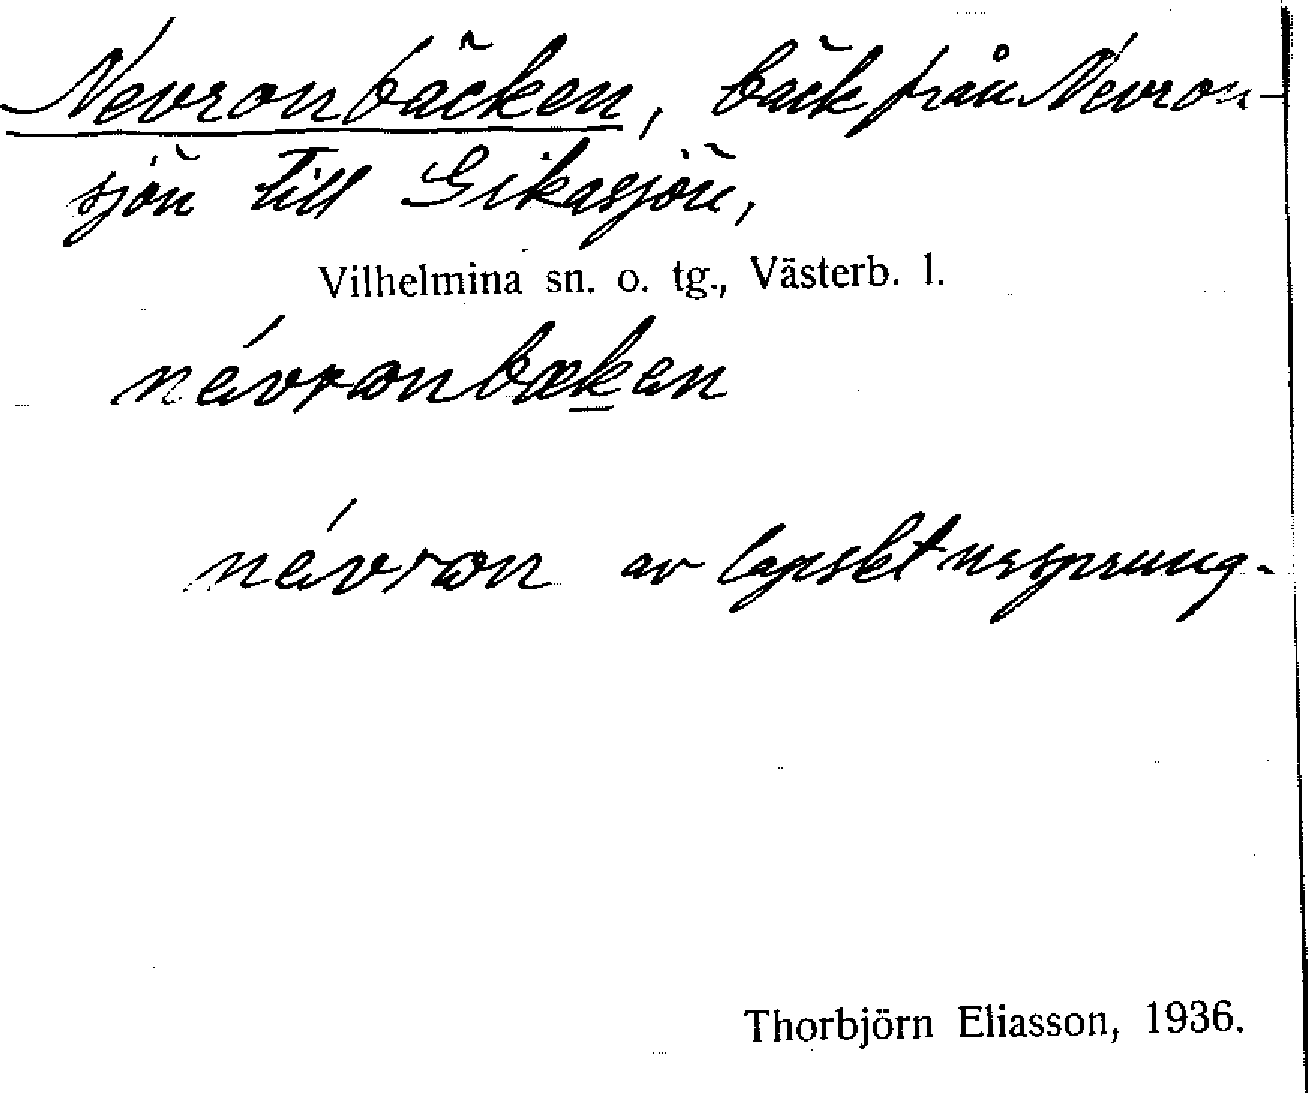 Nevronbäcken, bäck från Nevron-
sjön till Gikasjön,
Vilhelmina sn. o. tg., Västerb. l.
névronbækən
névron av lapskt ursprung.
Thorbjörn Eliasson, 1936.